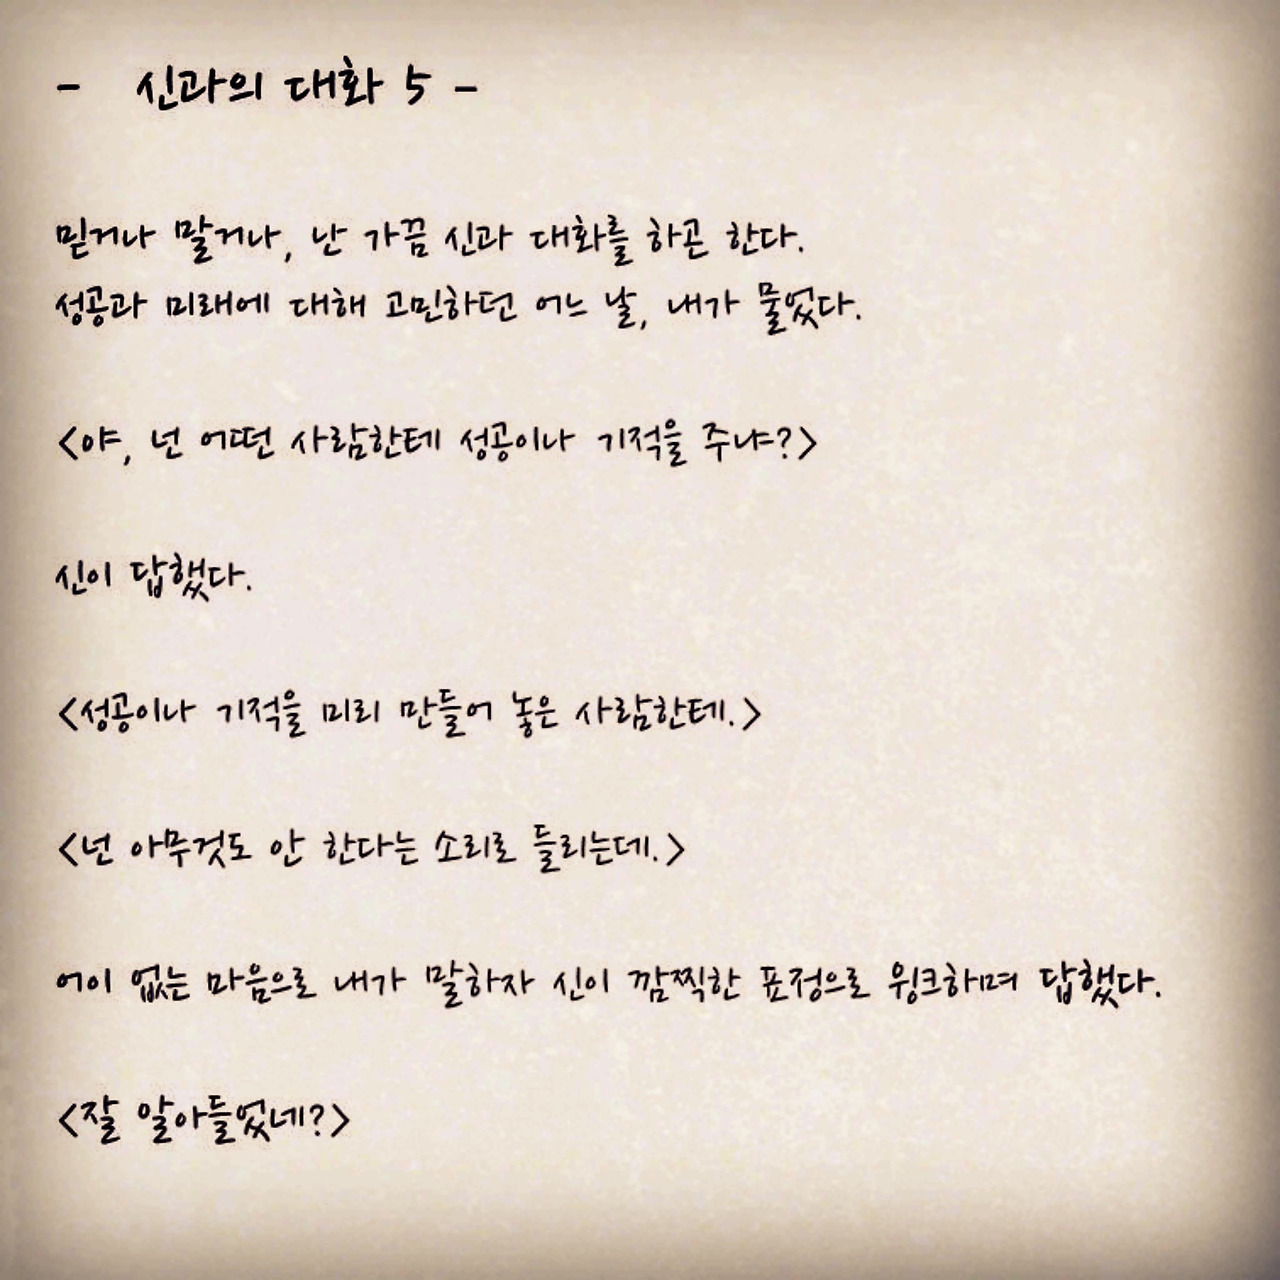 - 신과의 대화 5 -
믿거나 말거나, 난 가끔 신과 대화를 하곤 한다.
성공과 미래에 대해 고민하던 어느 날, 내가 물었다.
<야, 넌 어떤 사람한테 성공이나 기적을 주냐?>
신이 답했다.
<성공이나 기적을 미리 만들어 놓은 사람한테.>
<넌 아무것도 안 한다는 소리로 들리는데.>
어이 없는 마음으로 내가 말하자 신이 깜찍한 표정으로 윙크하며 답했다.
<잘 알아들었네?>